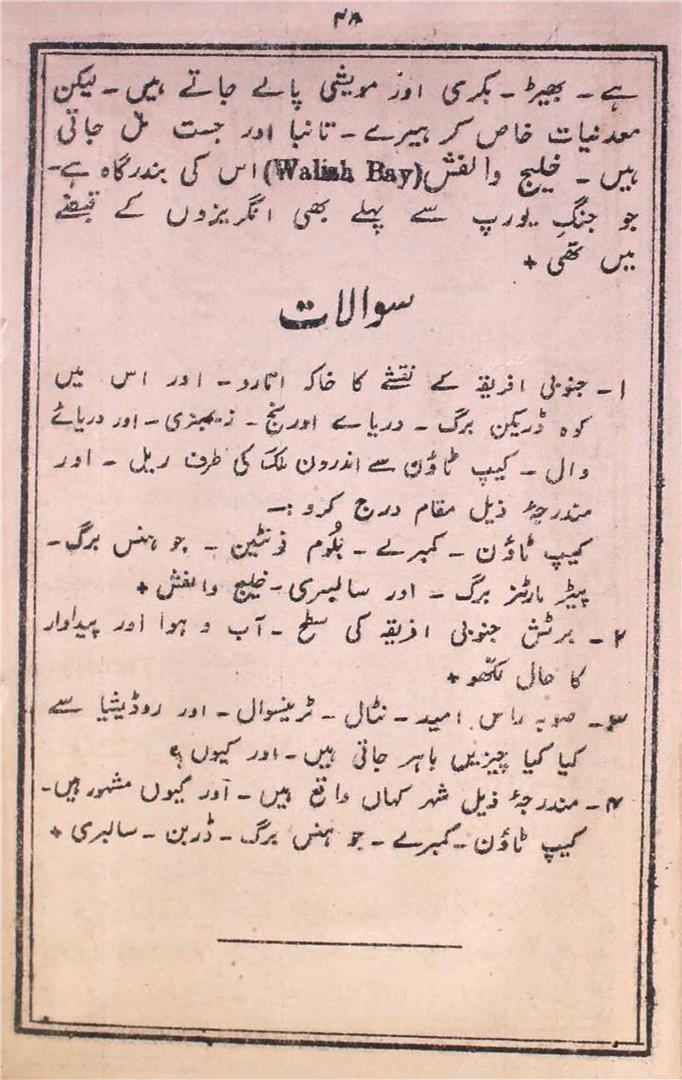 ۴۸
ہے ۔ بھیڑ ۔ بکری اور مویشی پالے جاتے ہیں ۔ لیکن
معدنیات خاص کر ہیرے ۔ تانبا اور جست مل جاتی
ہیں ۔ خلیج والفش (Walish Bay) اس کی بندرگاہ ہے ۔
جو جنگِ یورپ سے پہلے بھی انگریزوں کے قبضے
میں تھی +
سوالات
۱ ۔ جنوبی افریقہ کے نقشے کا خاکہ اتارو ۔ اور اس میں
کوہ ڈریکن برگ ۔ دریاے اورنج ۔ زیمبزی ۔ اور دریائے
وال ۔ کیپ ٹاؤن سے اندرون ملک کی طرف ریل ۔ اور
مندرجۂ ذیل مقام درج کرو :۔
کیپ ٹاؤن ۔ کمبرلے ۔ بلُوم فونٹین ۔ جو ہنس برگ ۔
پیٹر مارٹنر برگ ۔ اور سالسبری ۔ خلیج والفش +
۲ ۔ برٹش جنوبی افریقہ کی سطح ۔ آب و ہوا اور پیداوار
کا حال لکھو +
۳ ۔ صوبہ راس امید ۔ نٹال ۔ ٹرینسوال ۔ اور روڈیشیا سے
کیا کیا چیزیں باہر جاتی ہیں ۔ اور کیوں ؟
۴ ۔ مندرجۂ ذیل شہر کہاں واقع ہیں ۔ اور کیوں مشہور ہیں ۔
کیپ ٹاؤن ۔ کمبرلے ۔ جو ہنس برگ ۔ ڈربن ۔ سالبری +